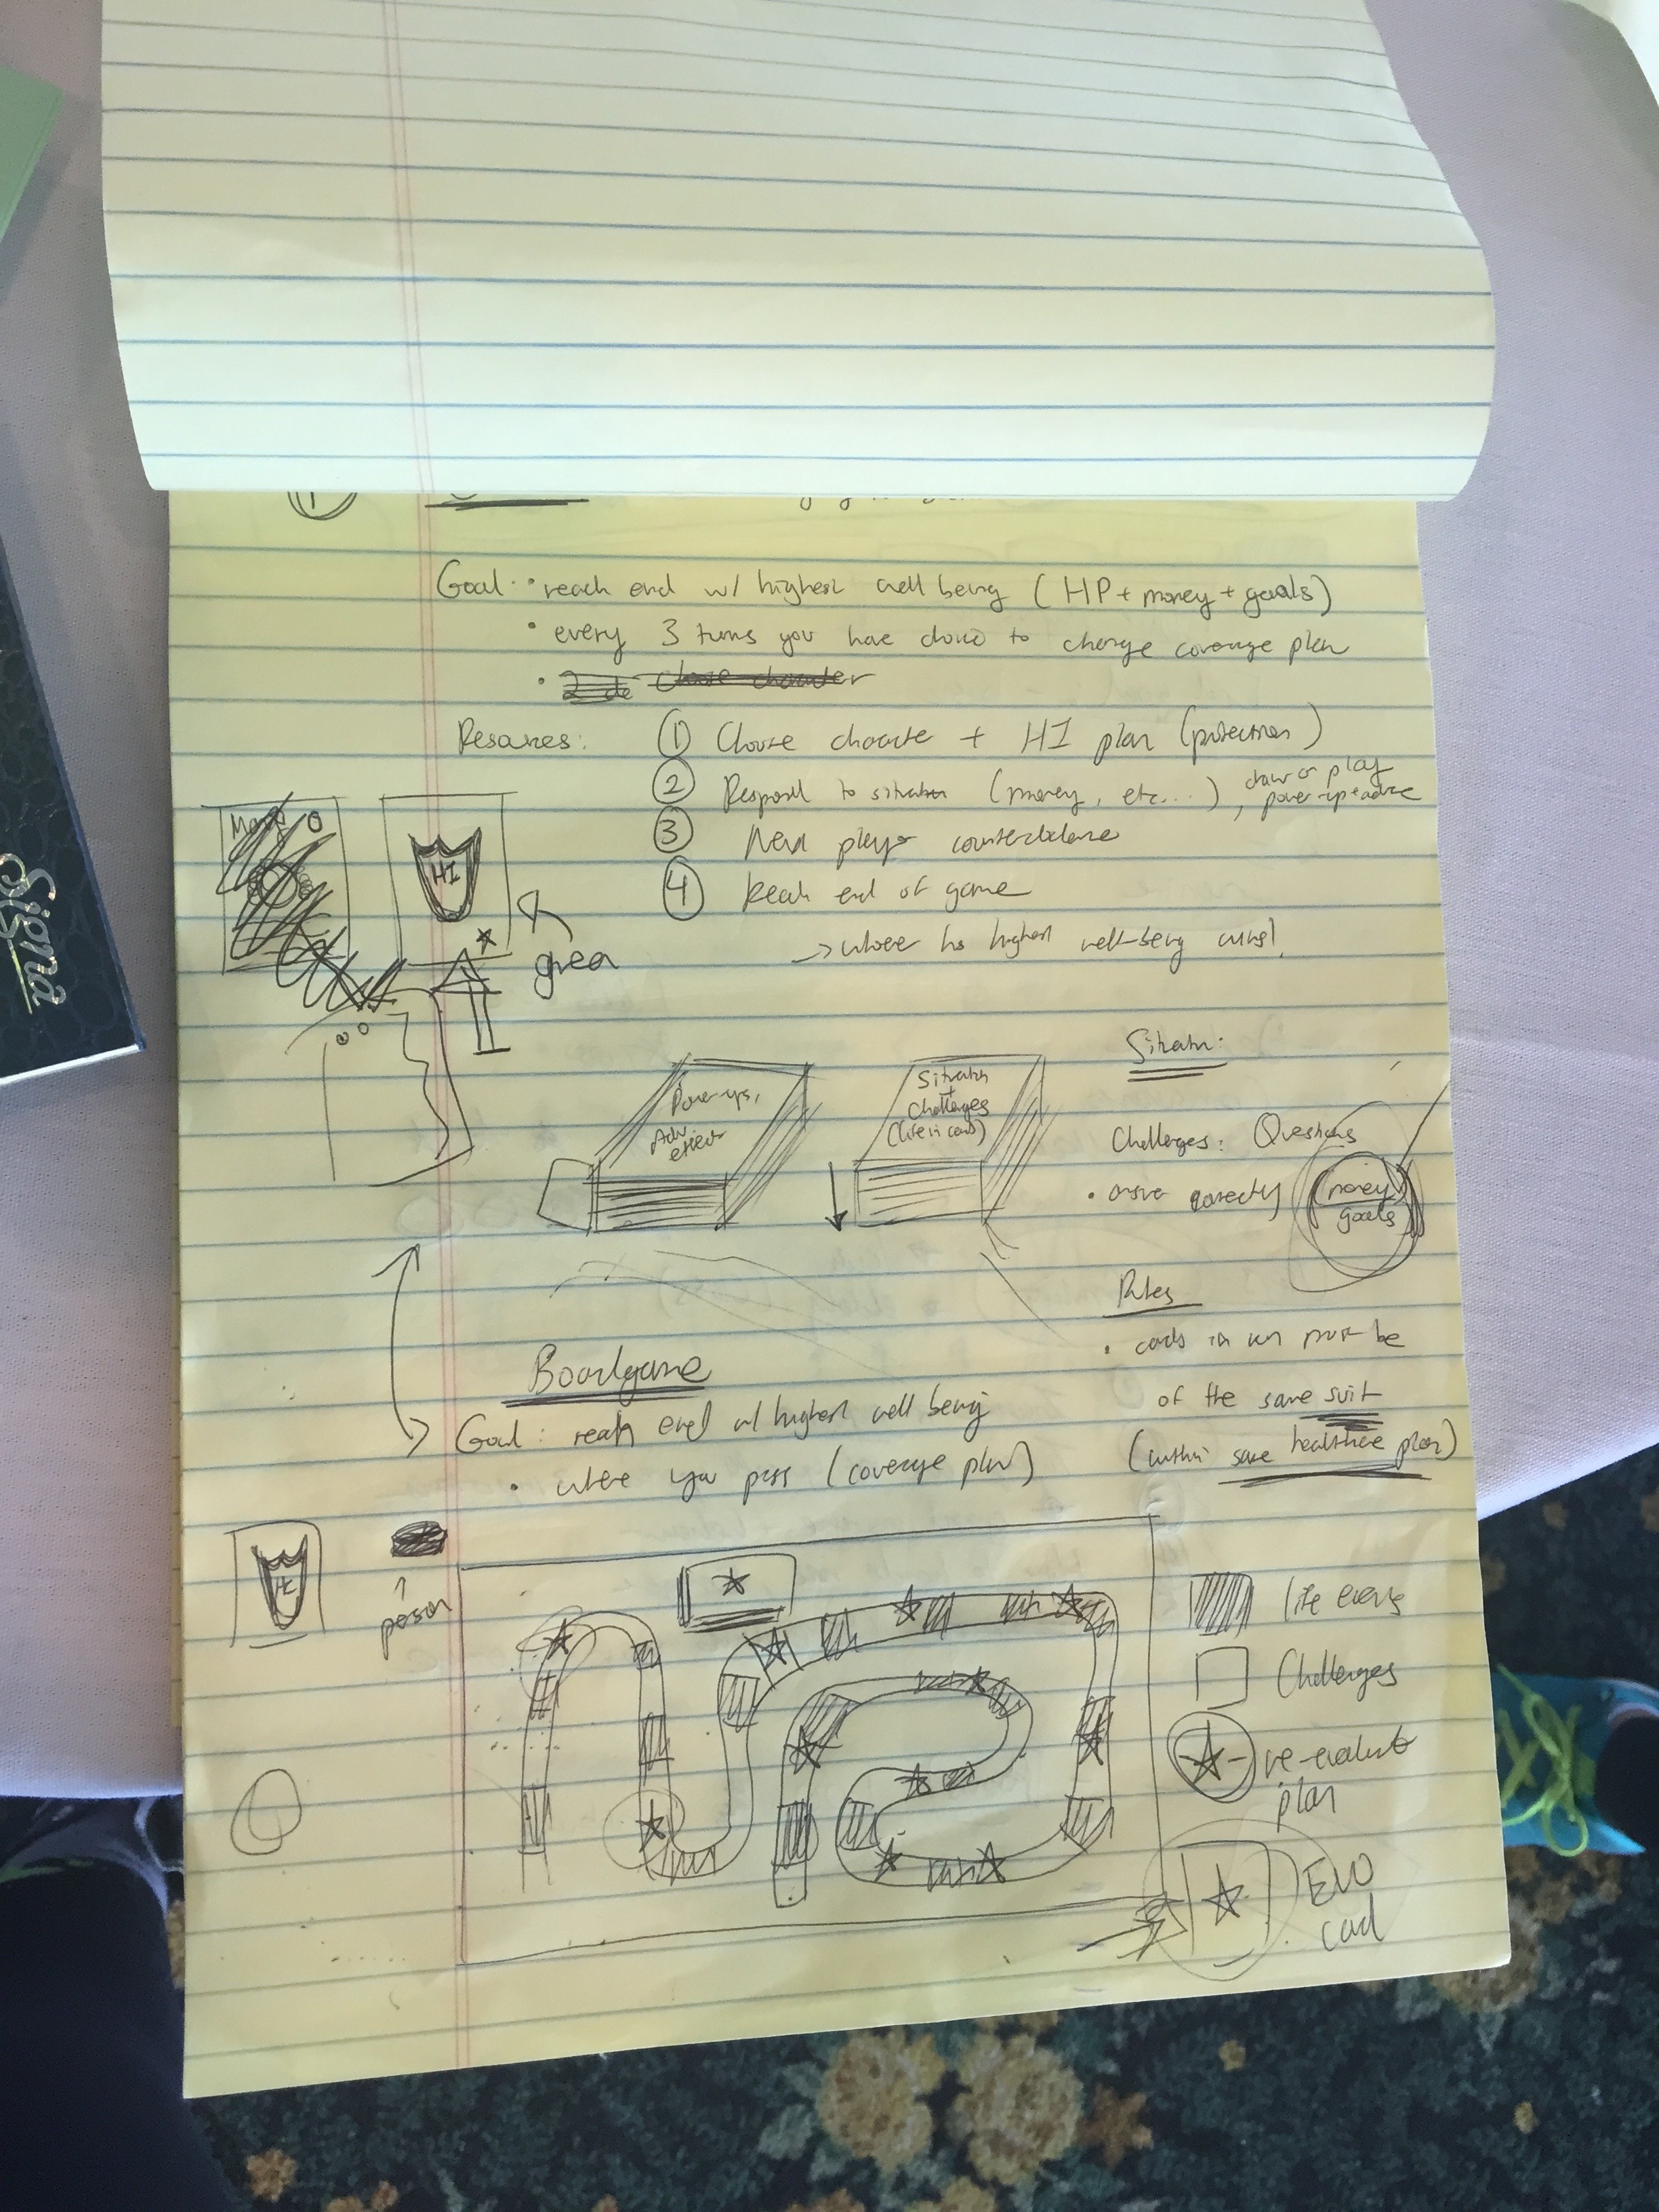 Goal: • reach end w/ highest well being (HP + money + goals)
• every 3 turns you have choice to change coverage plan
• choose character
Resources:
① Choose character + HI plan (protection)
② Respond to situation (money, etc...), draw or play
power-up + advice
③ Next player counterbalance
④ Reach end of game
→ whoever has highest well-being wins!
HI
green
Power-ups,
Adv.
effect
Situation
+
Challenges
(life in cards)
Situation:
Challenges: Questions
• answer correctly (money
goals)
Rules
• cards in run must be
of the same suit
(within same healthcare plan)
Boardgame
Goal: reach end w/ highest well being
• where you pass (coverage plan)
person
life events
Challenges
re-evaluate
plan
card